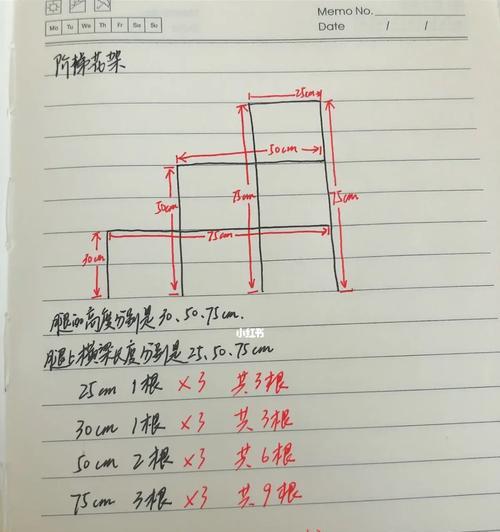 Memo No.
Mo Tu We Th Fr Sa Su
Date / /
阶梯花架
25cm
50cm
50cm
75cm
75cm
75cm
30cm
腿的高度分别是30、50、75cm.
小红书
腿上横梁长度分别是25、50、75cm
25cm 1根 ×3 共3根
30cm 1根 ×3 共3根
50cm 2根 ×3 共6根
75cm 3根 ×3 共9根